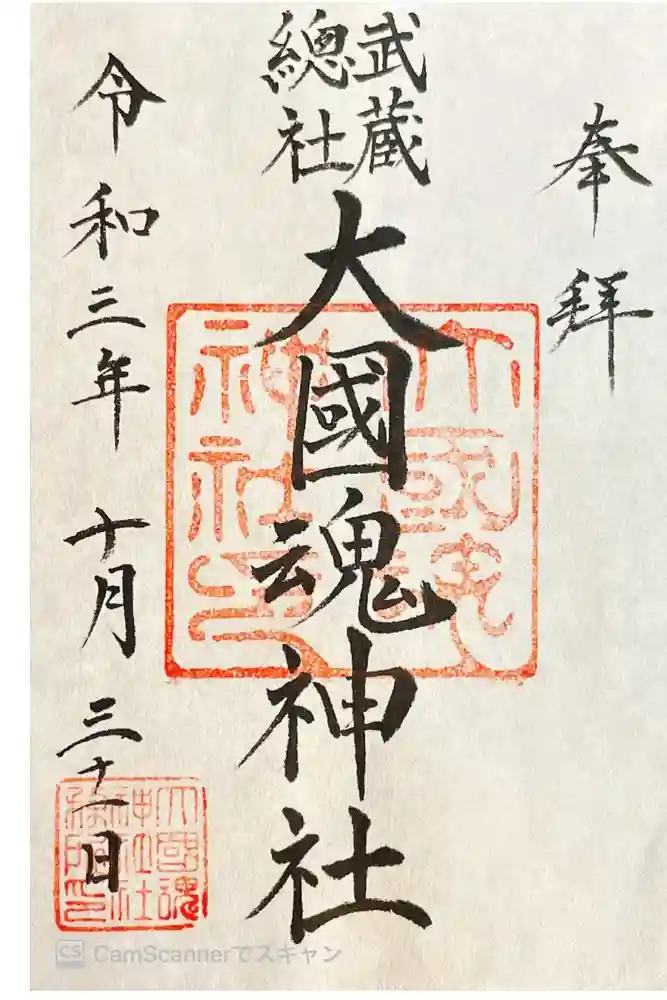 奉拝
武蔵
總社
大國魂神社
令和三年 十月 三十一日
大國魂
神社印
大國魂
神社社
務所印
CS CamScannerでスキャン